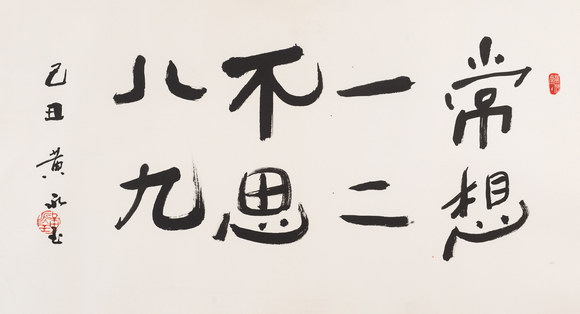 常想
一二
不思
八九
己丑 黄永玉